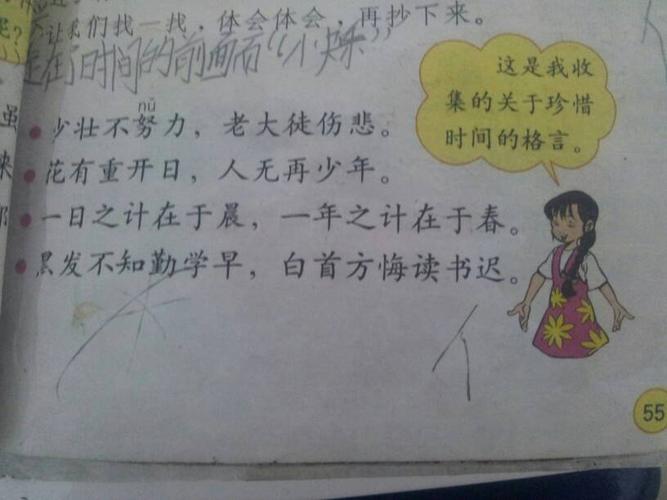 让我们找一找，体会体会，再抄下来。
走在了时间的前面而"小
这是我收
集的关于珍惜
时间的格言。
nǔ
少壮不努力，老大徒伤悲。
花有重开日，人无再少年。
一日之计在于晨，一年之计在于春。
黑发不知勤学早，白首方悔读书迟。
个
55